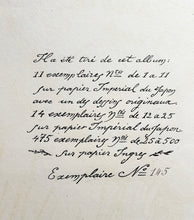 Il a été tiré de cet album:
11 exemplaires Nos de 1 à 11
sur papier Impérial du Japon
avec un des dessins originaux
14 exemplaires Nos de 12 à 25
sur papier Impérial du Japon
475 exemplaires Nos de 25 à 500
sur papier Ingres
Exemplaire No 145